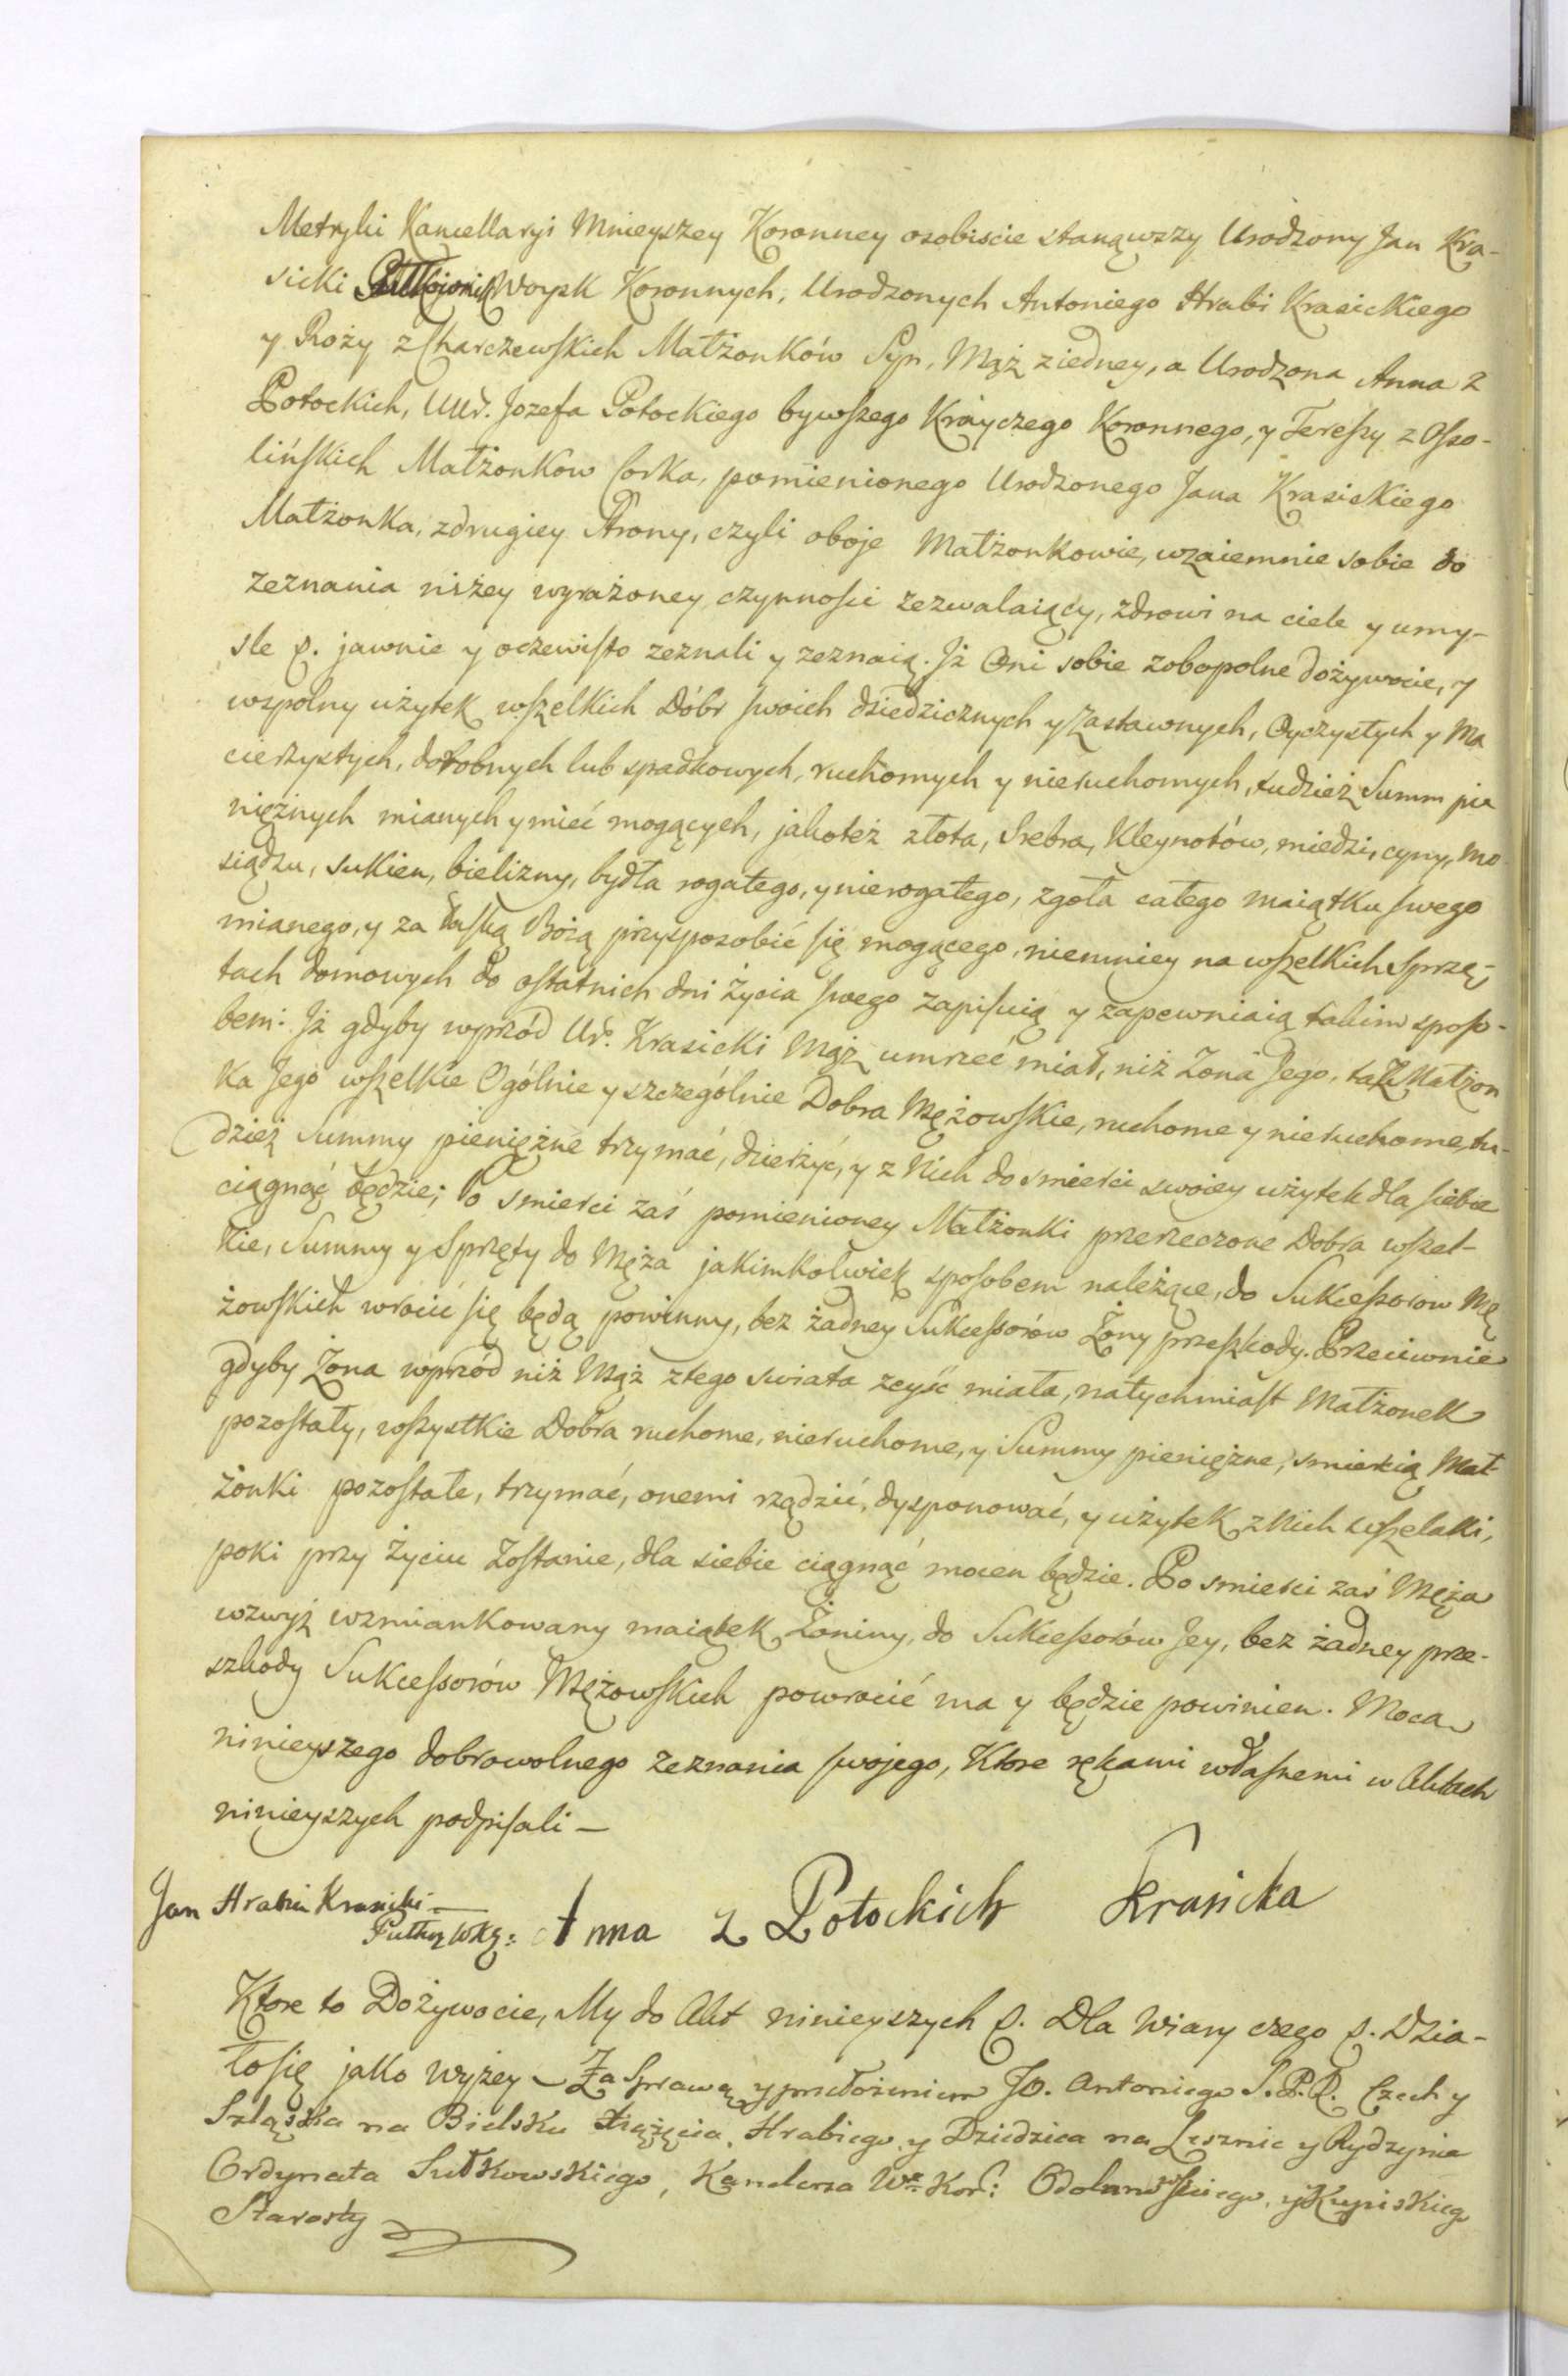 Metryki Kancellaryi Mnieyszey Koronney osobiscie stanąwszy Urodzony Jan Kra-
sicki Pułkownik Woysk Koronnych, Urodzonych Antoniego Hrabi Krasickiego
y Roży z Charczewskich Małżonków Syn, Mąż z iedney, a Urodzona Anna z
Potockich, UUr. Jozefa Potockiego bywszego Krayczego Koronnego, y Teressy z Osso-
lińskich Małżonkow Corka, pomienionego Urodzonego Jana Krasickiego
Małżonka, z drugiey Strony, czyli oboje Małżonkowie, wzaiemnie sobie do
zeznania niżey wyrażoney czynności zezwalaiący, zdrowi na ciele y umy-
sle p. jawnie y oczewisto zeznali y zeznaią. Iż Oni sobie zobopolne dożywocie, y
wspolny użytek wszelkich Dóbr swoich dziedzicznych y Zastawnych, Oyczystych y Ma
cierzystych, dorobnych lub spadkowych, ruchomych y nieruchomych, tudzież Summ pie
niężnych mianych y mieć mogących, jakoteż złota, Srebra, Kleynotów, miedzi, cyny, mo
siądzu, sukien, bielizny, bydła rogatego, y nierogatego, zgoła całego maiątku swego
mianego, y za łaską Bożą przysposobić się mogącego, niemniey na wszelkich Sprzę-
tach domowych do ostatnich dni życia swego zapisuią y zapewniaią takim sposo-
bem: Iż gdyby wprzód Ur. Krasicki Mąż umrzeć miał, niż Żona Jego, taż Małżon
ka Jego wszelkie Ogólnie y szczególnie Dobra Mężowskie, ruchome y nieruchome, tu-
dzież Summy pieniężne trzymać, dzierżyć, y z Nich do smierci swoiey użytek dla siebie
ciągnąć będzie; Po smierci zaś pomienioney Małżonki przerzeczone Dobra wszel-
kie, Summy y Sprzęty do Męża jakimkolwiek sposobem należące, do Sukcessorow Mę
żowskich wrocić się będą powinny, bez żadney Sukcessorów Żony przeszkody. Przeciwnie
gdyby Żona wprzód niż Mąż z tego swiata zeyść miała, natychmiast Małżonek
pozostały, wszystkie Dobra ruchome, nieruchome, y Summy pieniężne, smiercią Mał-
żonki pozostałe, trzymać, onemi rządzić, dysponować, y użytek z Nich wszelaki,
poki przy życiu zostanie, dla siebie ciągnąć mocen będzie. Po smierci zaś Męża
wzwyż wzmiankowany maiątek Żoniny, do Sukcessorów Jey, bez żadney prze-
szkody Sukcessorów Mężowskich powrocić ma y będzie powinien. Mocą
ninieyszego dobrowolnego zeznania swojego, Ktore rękami własnemi w Aktach
ninieyszych podpisali —
Jan Hrabia Krasicki
Anna z Potockich Krasicka
Ktore to Dożywocie, My do Akt ninieyszych p. Dla Wiary czego p. Dzia-
ło się jako wyżey — Za Sprawą y przełożeniem JO. Antoniego S. P. R. Czech y
Szląska na Bielsku Xiążęcia, Hrabiego y Dziedzica na Lesznie y Rydzynie
Ordynata Sułkowskiego, Kanclerza Wo Kor: Odolanowskiego, y Kupiskiego
Starosty